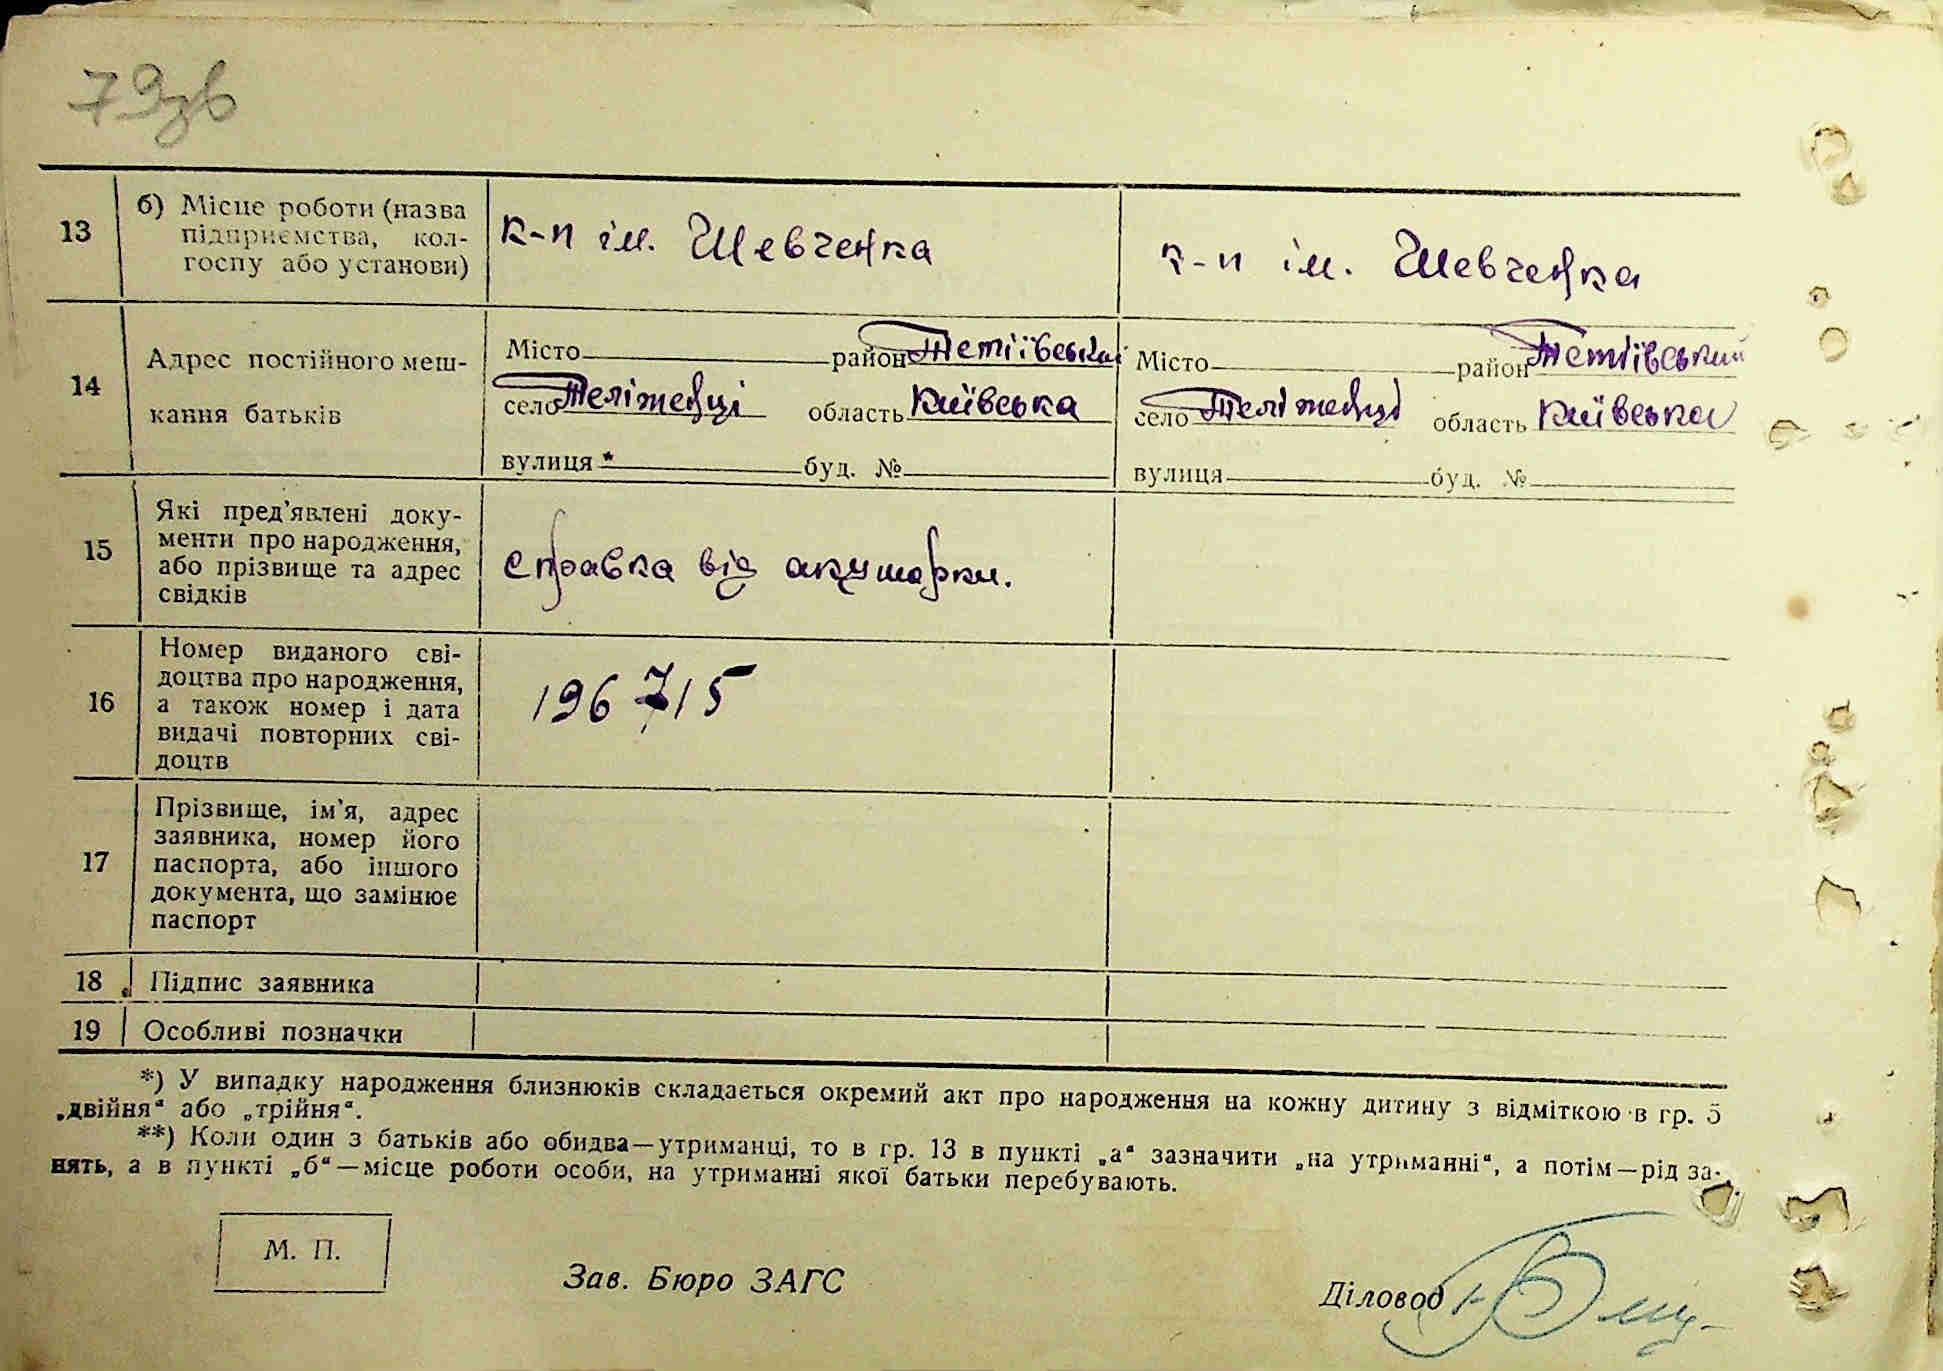 79зв
13 б) Місце роботи (назва підприємства, кол-госпу або установи) к-п ім. Шевченка к-п ім. Шевченка
14 Адрес постійного меш-кання батьків
Місто район Тетіївський Місто район Тетіївський
село Теліженці область Київська село Теліженці область Київська
вулиця * буд. № вулиця буд. №
15 Які пред'явлені доку-
менти про народження,
або прізвище та адрес
свідків
справка від акушарки.
16 Номер виданого сві-
доцтва про народження,
а також номер і дата
видачі повторних сві-
доцтв
196715
17 Прізвище, ім'я, адрес
заявника, номер його
паспорта, або іншого
документа, що замінює
паспорт
18 Підпис заявника
19 Особливі позначки
*) У випадку народження близнюків складається окремий акт про народження на кожну дитину з відміткою в гр. 5
„двійня“ або „трійня“.
**) Коли один з батьків або обидва—утриманці, то в гр. 13 в пункті „а“ зазначити „на утриманні“, а потім—рід за-
нять, а в пункті „б“—місце роботи особи, на утриманні якої батьки перебувають.
М. П.
Зав. Бюро ЗАГС
Діловод